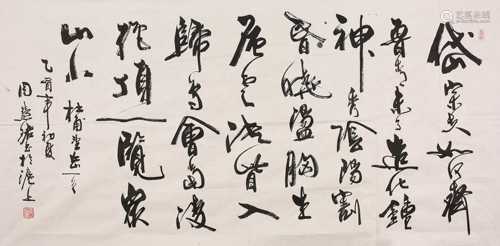 岱宗夫如何齊
魯青未了造化鐘
神秀陰陽割
昏曉盪胸生
层雲決眥入
歸鳥會當凌
絕頂一覽眾
山小 杜甫望岳一首
乙酉年初夏
周慧珺書於滬上